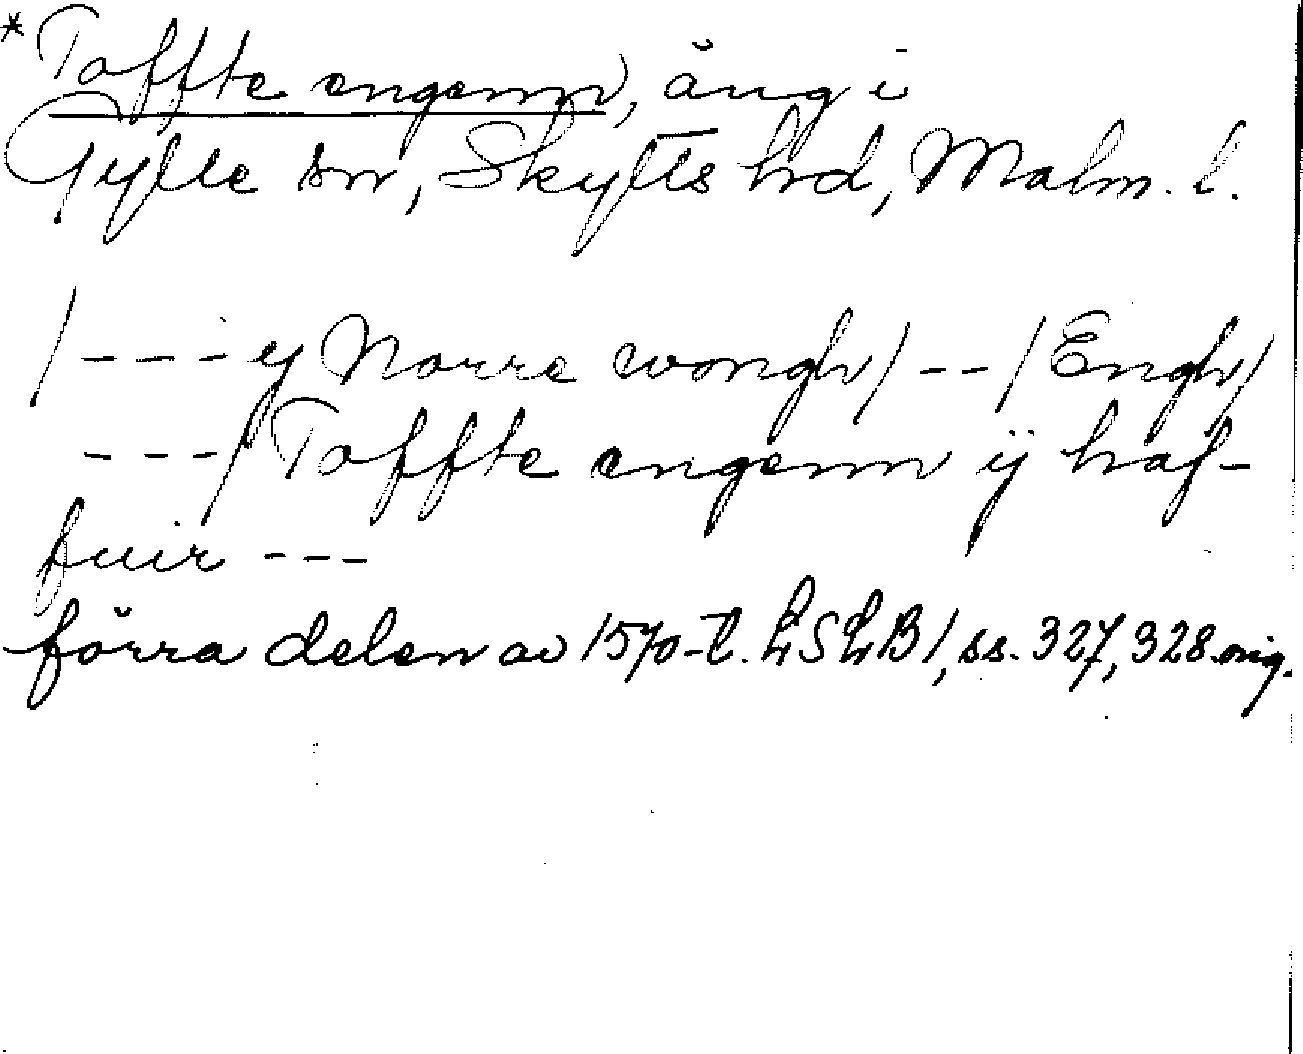 *Toffte engenn, äng i
Gylle sn, Skytts hd, Malm. l.
/---y Norre wongh/--/Engh/
---/Toffte engenn ÿ haf-
fuir ---
förra delen av 1570-t. LSLB1, ss. 327, 328 orig.